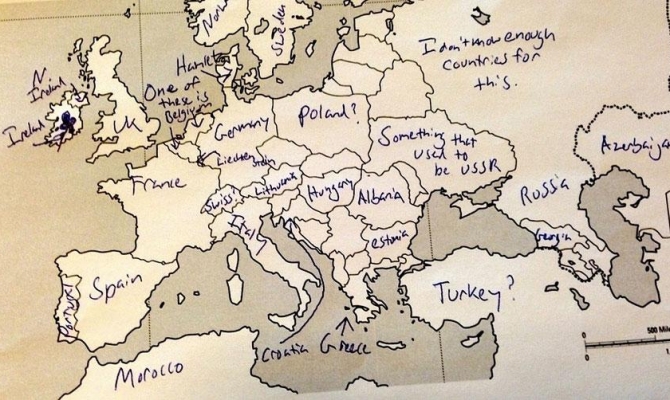 Norw
Sweden
Hamlet
I don't know enough
countries for
this.
N
Ireland
One of
these is
Belgium
Ireland
UK
Germany
Poland?
Something that
used to
be USSR
Azerbaija
Liechtenstein
France
Swiss?
Lithuania
Hungary
Albania
Russia
Italy
Estonia
Georgia
Spain
Portugal
Turkey?
Croatia
Greece
Morocco
0
500 Mile
0